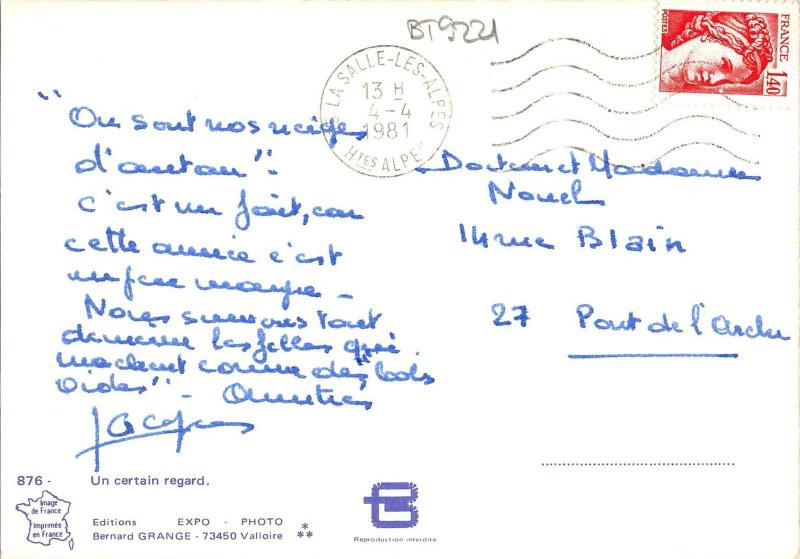 BT9221
LA SALLE-LES-ALPES
13 H
4-4
1981
HTES ALPES
POSTES
FRANCE
1,40
"Ou sont nos neiges
d'antan"-
c'est un fait, car
cette année c'est
un peu maigre -
Nous suivons tout
de même les filles qui
marchent comme des "bols
vides" - Amitiés
Jacques
Docteur et Madame
Nouel
14 rue Blain
27 Pont de l'Arche
876 - Un certain regard.
Image
de France
Imprimée
en France
Editions EXPO - PHOTO
Bernard GRANGE - 73450 Valloire
Reproduction interdite